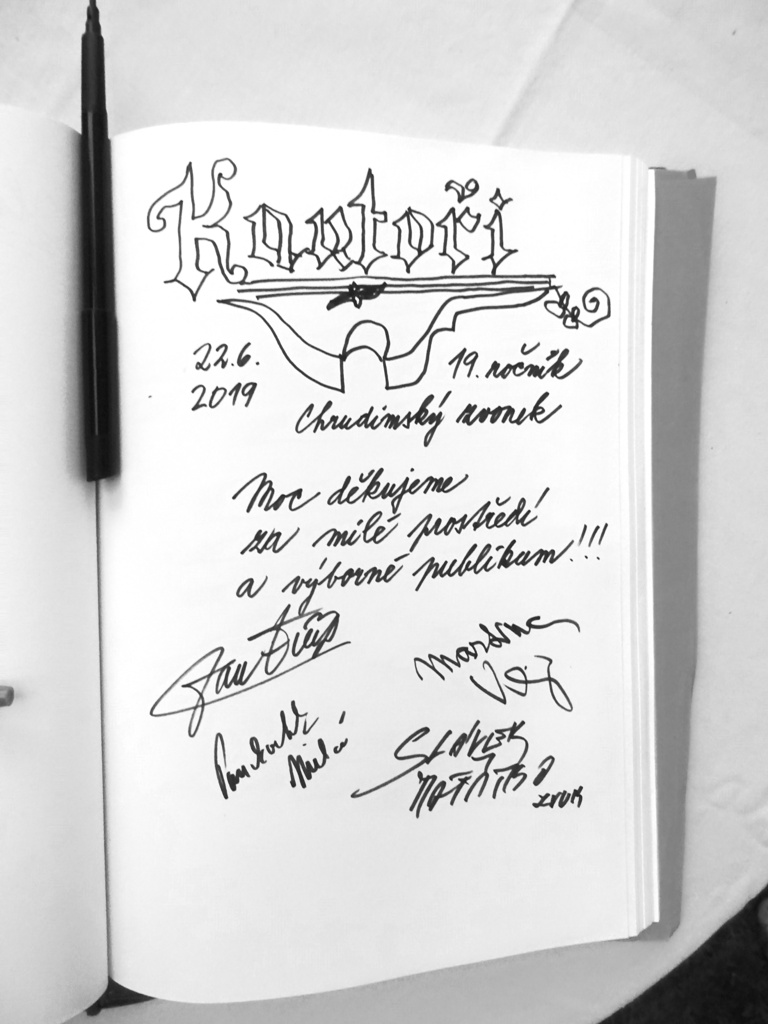 Kantoři
22.6.
2019
19. ročník
Chrudimský zvonek
Moc děkujeme
za milé prostředí
a výborné publikum!!!
Jan
Martina
Míla
SLÁVEK
ZVUK